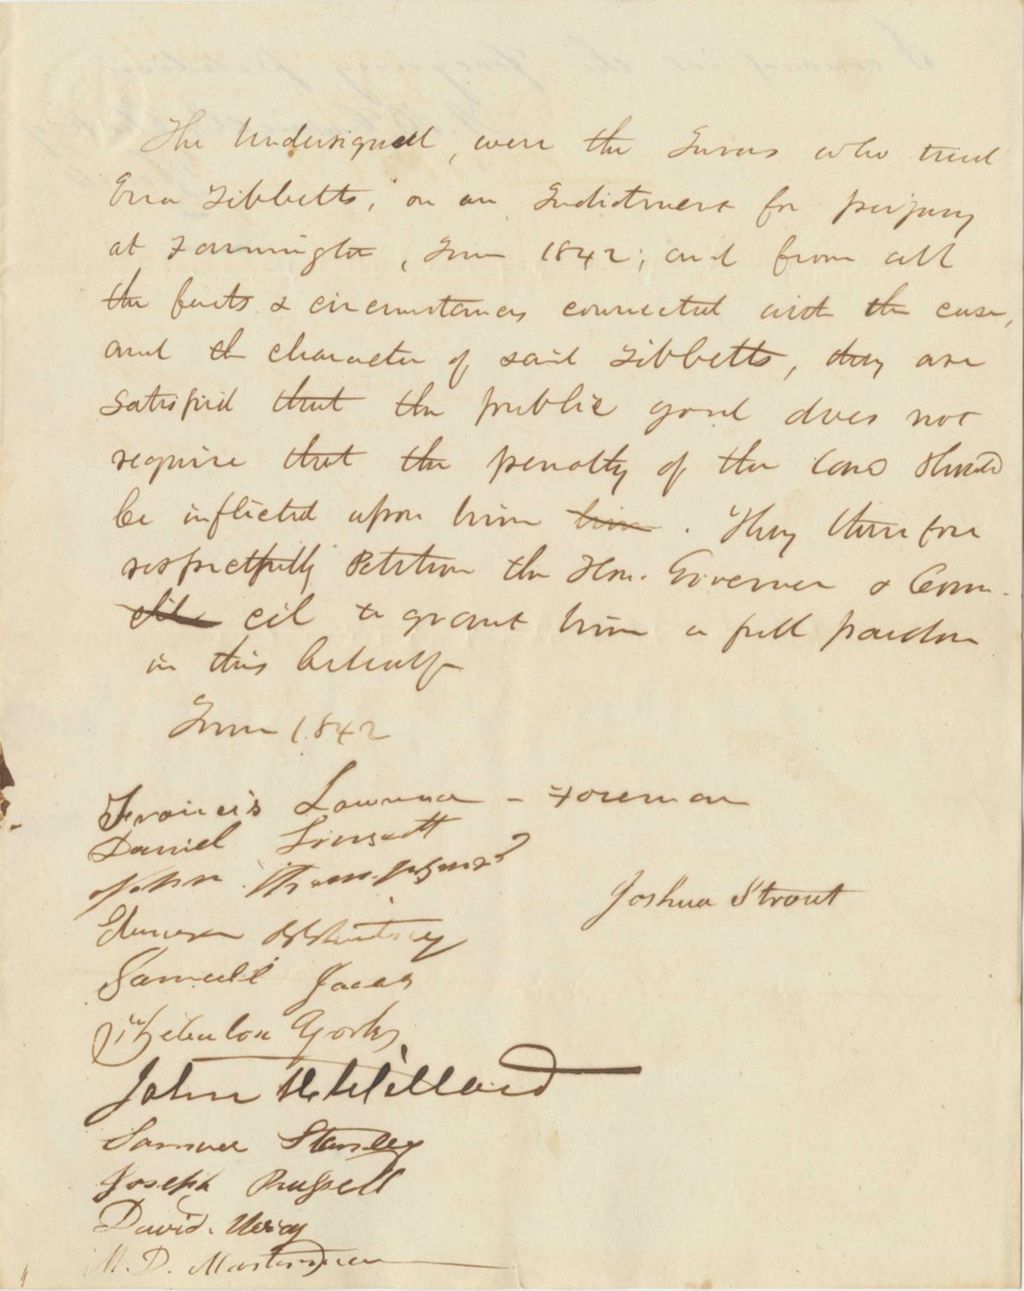 The Undersigned, were the Jurors who tried
Ezra Tibbetts, on an Indictment for perjury
at Farmington, June 1842; and from all
the facts & circumstances connected with the case,
and the character of said Tibbetts, they are
satisfied that the public good does not
require that the penalty of the law should
be inflicted upon him him. They therefore
respectfully Petition the Hon. Governor & Coun-
cil to grant him a full pardon
in this behalf
June 1842
Francis Lawrence - Foreman
Daniel Linscott
John Thompson
Joshua Strout
Whitney
Samuel
Zebulon York
John H Willard
Samuel Stanley
Joseph Russell
David
M. D.